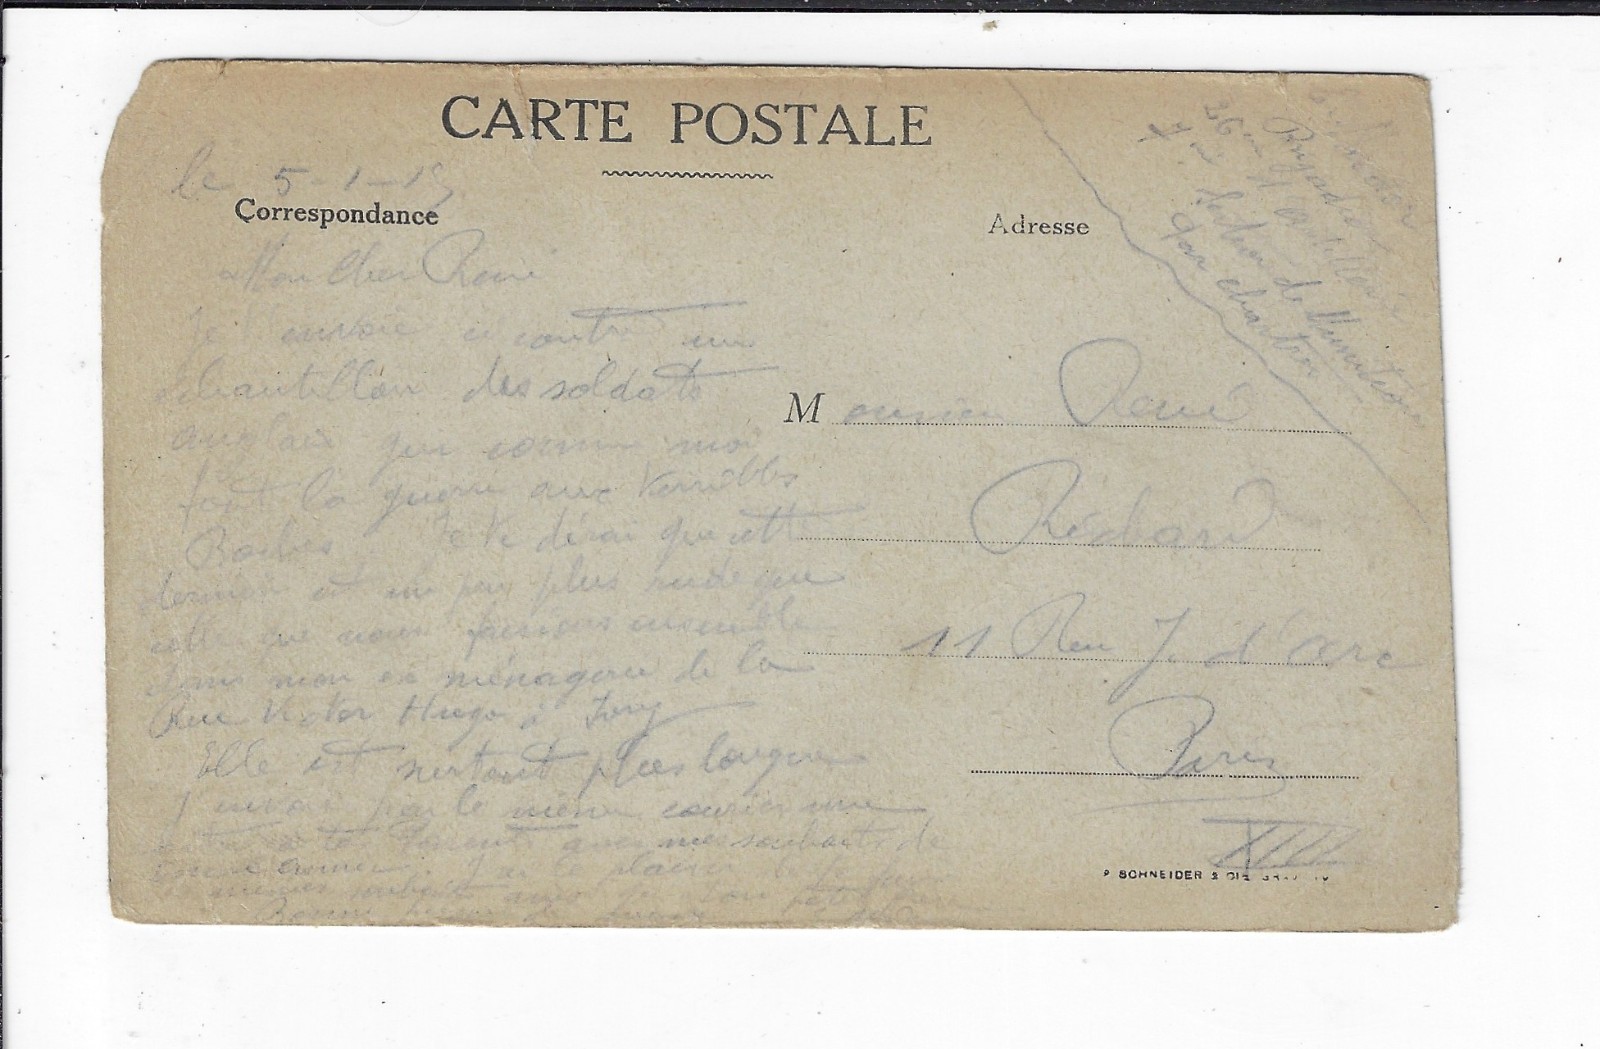 CARTE POSTALE
le 5-1-15
Correspondance
Mon Cher René
Je t'envoie ci contre un
échantillon des soldats
anglais qui comme moi
font la guerre aux terribles
Boches Je te dirai que cette
dernière est un peu plus rude que
celle que nous faisions ensemble
dans mon ex ménagerie de la
Rue Victor Hugo à Ivry
Elle est surtout plus longue
J'envoie par le même courrier une
lettre à tes Parents avec mes souhaits de
bonne année. J'ai le plaisir de te faire
les mêmes souhaits ainsi ton petit
Bonne
Adresse
Brigadier
26me d'Artillerie
7me Section de Munitions
par Chartres
Monsieur René
Richard
11 Rue J. d'Arc
Paris
XIII
P SCHNEIDER & CIE